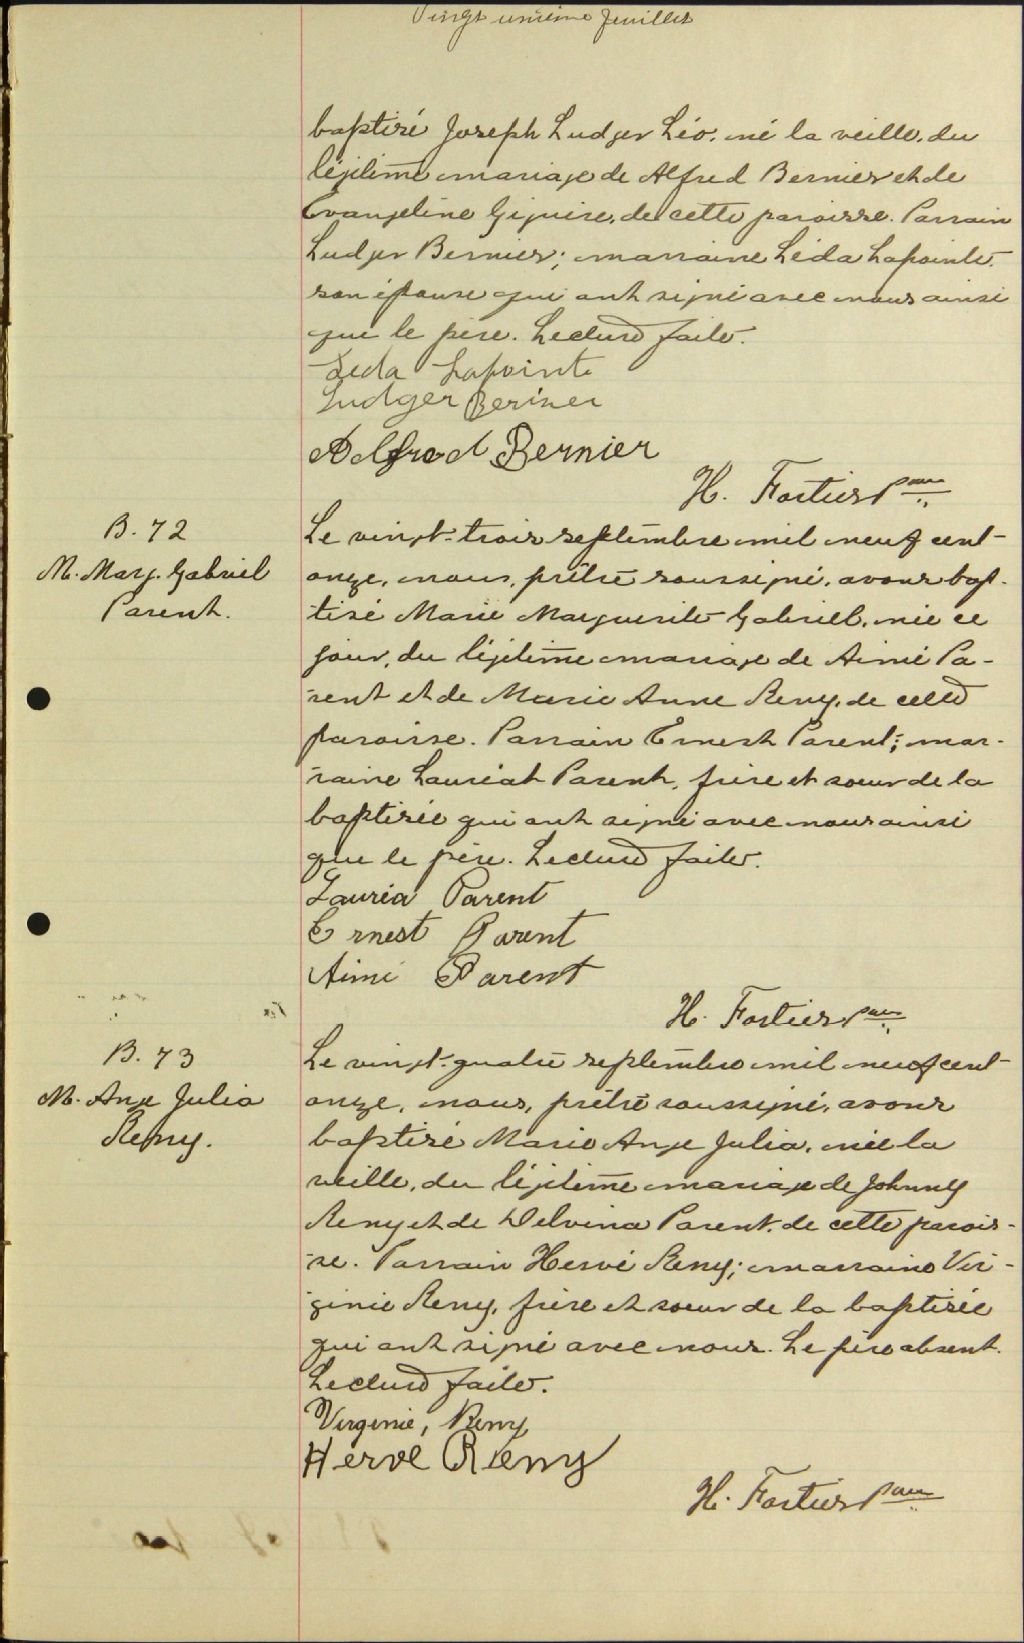 Vingt unième feuillet
baptisé Joseph Ludger Léo, né la veille, du
légitime mariage de Alfred Bernier et de
Evangeline Giguire, de cette paroisse. Parrain
Ludger Bernier; marraine Léda Lapointe
son épouse qui ont signé avec nous ainsi
que le père. Lecture faite.
Leda Lapointe
Ludger Bernier
Alfred Bernier
H. Fortier Ptre
B. 72
M. Marg. Gabriel
Parent.
Le vingt-trois septembre mil neuf cent
onze, nous, prêtre soussigné, avons bap-
tisé Marie Marguerite Gabriel, née ce
jour, du légitime mariage de Aimé Pa-
rent et de Marie Anne Remy, de cette
paroisse. Parrain Ernest Parent; mar-
raine Lauréat Parent, frère et soeur de la
baptisée qui ont signé avec nous ainsi
que le père. Lecture faite.
Lauréa Parent
Ernest Parent
Aimé Parent
H. Fortier Ptre
B. 73
M. Ange Julia
Remy.
Le vingt-quatre septembre mil neuf cent
onze, nous, prêtre soussigné, avons
baptisé Marie Ange Julia, née la
veille, du légitime mariage de Johnny
Remy et de Delvina Parent, de cette parois-
se. Parrain Hervé Remy; marraine Vir-
ginie Remy, frère et soeur de la baptisée
qui ont signé avec nous. Le père absent.
Lecture faite.
Virginie, Remy
Hervé Remy
H. Fortier Ptre